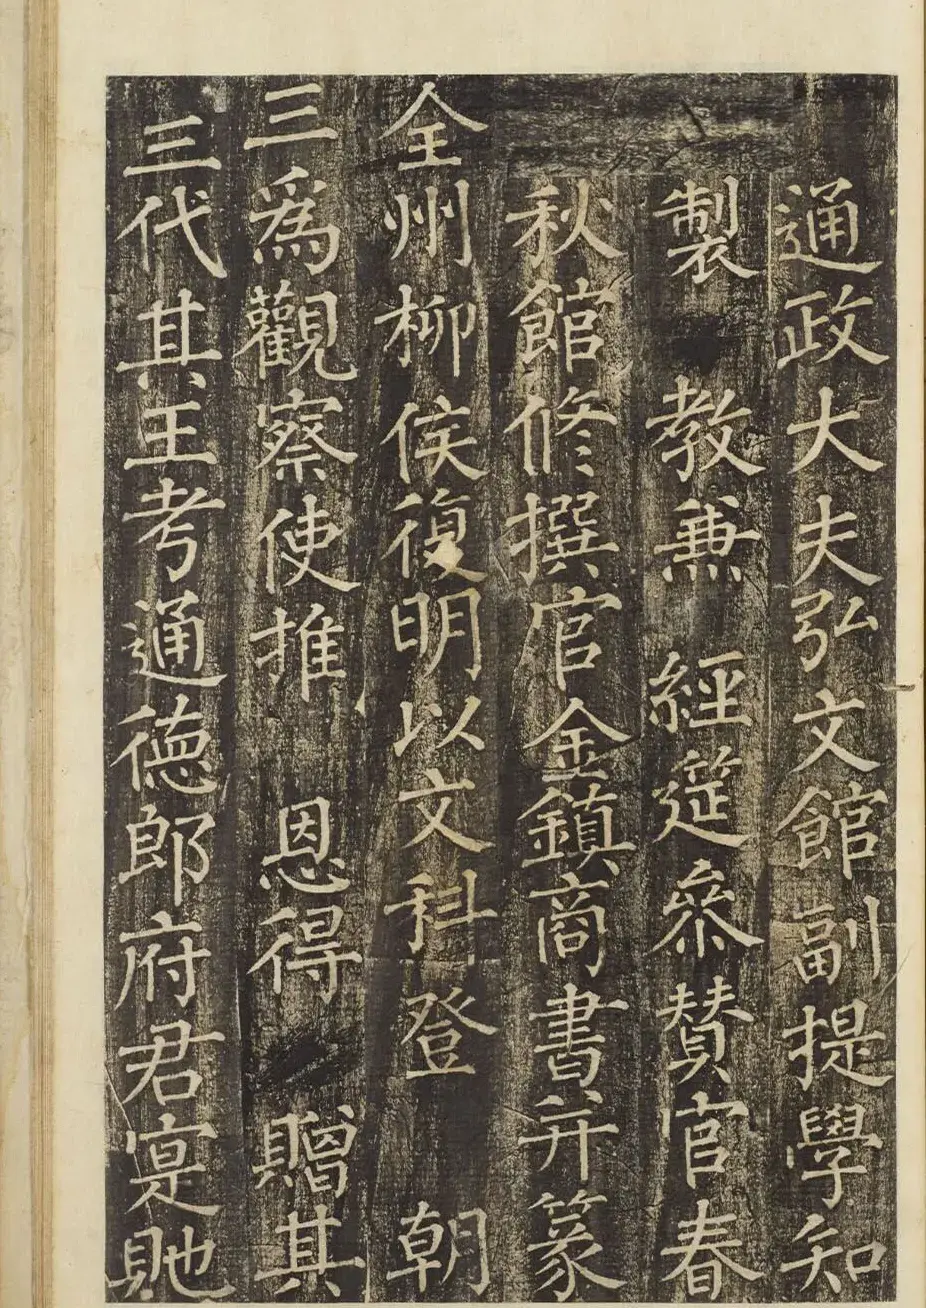 通政大夫弘文館副提學知
製 教兼 經筵叅贊官春
秋館修撰官金鎭商書并篆
全州柳侯復明以文科登 朝
三爲觀察使推 恩得 贈其
三代其王考通德郎府君寔貤